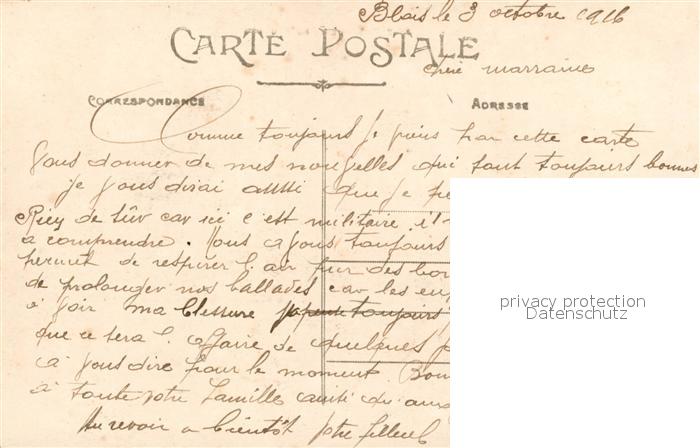 Blois le 3 octobre 1916
CARTE POSTALE
chère marraine
CORRESPONDANCE
ADRESSE
Comme toujours je viens par cette carte
vous donner de mes nouvelles qui sont toujours bonnes
je vous dirai aussi que je
Rien de sûr car ici c est militaire
a comprendre. Nous avons toujours
permet de respirer l. air pur des
de prolonger nos ballades car les
à voir ma blessure toujours
que ce sera l. affaire de quelques
à vous dire pour le moment.
à toute votre famille
Au revoir a bientôt votre filleul
privacy protection
Datenschutz